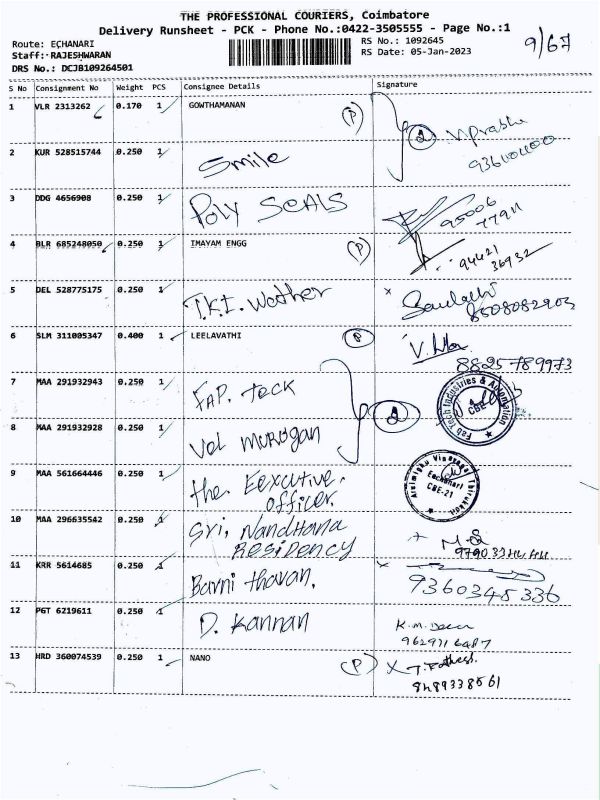 THE PROFESSIONAL COURIERS, Coimbatore
Delivery Runsheet - PCK - Phone No.:0422-3505555 - Page No.:1
Route: EÇHANARI
RS No.: 1092645
9/67
Staff: RAJESHWARAN
RS Date: 05-Jan-2023
DRS No.: DCJB109264501
S No Consignment No Weight PCS Consignee Details Signature
1 VLR 2313262 0.170 1 GOWTHAMANAN (P) 2 N.Prabhu
2 KUR 528515744 0.250 1 Smile
3 DDG 4656908 0.250 1 POLY SEALS 95006
4 BLR 685248050 0.250 1 IMAYAM ENGG (P) 94421
36932
5 DEL 528775175 0.250 1 T.K.I. Wother x
8508082903
6 SLM 311005347 0.400 1 LEELAVATHI (P)
8825789973
7 MAA 291932943 0.250 1 FAP. TECK 2 Fab Tech Industries & Automation CBE
8 MAA 291932928 0.250 1 Vel murugan
9 MAA 561664446 0.250 1 the. Eexcutive.
officer.
Arulmighu Vinayagar Thirukoil Eachanari CBE-21
10 MAA 296635542 0.250 1 Sri, NandHana
RESIDENCY
11 KRR 5614685 0.250 1 Bavni tharan. x 9360345336
12 PGT 6219611 0.250 1 D. Kannan K.M.
13 HRD 360074539 0.250 1 NANO (P) x
8489338561